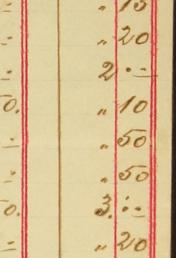 „ 15
„ 20
2 . –
0. „ 10
„ 50
„ 50
0. 3. : –
„ 20